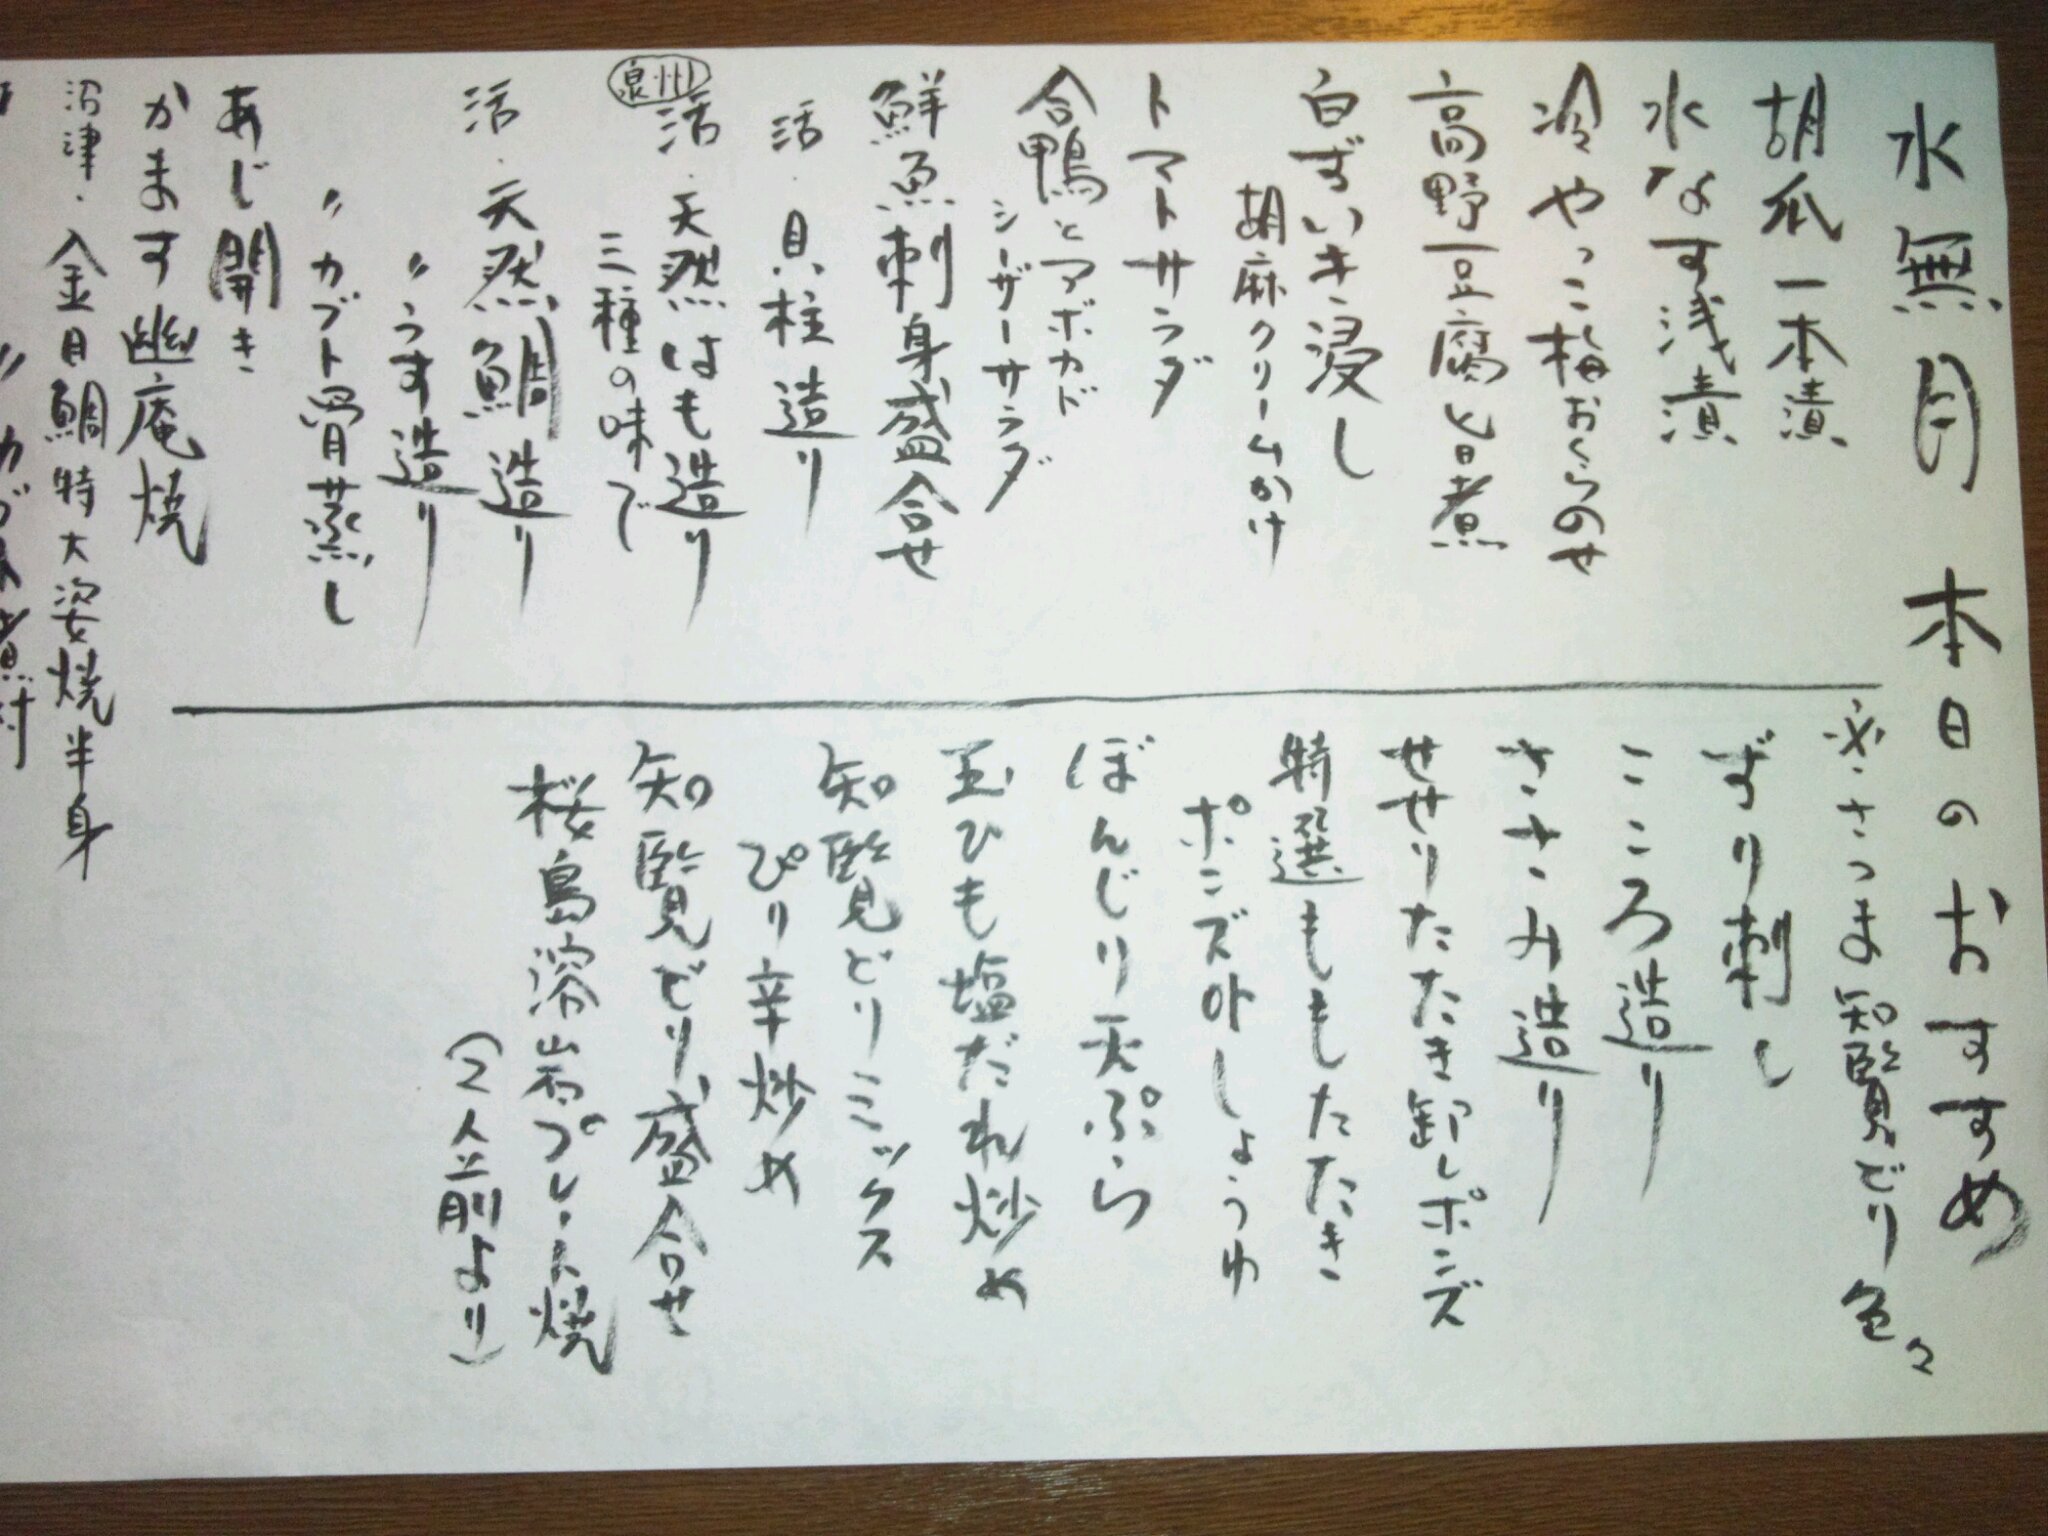 水無月 本日のおすすめ
胡瓜一本漬
水なす浅漬
冷やっこ梅おくらのせ
高野豆腐旨煮
白ずいき浸し
胡麻クリームかけ
トマトサラダ
合鴨とアボカド
シーザーサラダ
鮮魚刺身盛合せ
活・貝柱造り
泉州
活・天然はも造り
三種の味で
活・天然鯛造り
〃うす造り
〃カブト骨蒸し
あじ開き
かます幽庵焼
沼津・金目鯛特大姿焼半身
※さつま知覧どり色々
ずり刺し
こころ造り
ささみ造り
せせりたたき卸しポンズ
特選ももたたき
ポンズ外しょうゆ
ぼんじり天ぷら
玉ひも塩だれ炒め
知覧どりミックス
ぴり辛炒め
知覧どり盛合せ
桜島溶岩プレート焼
(2人前より)